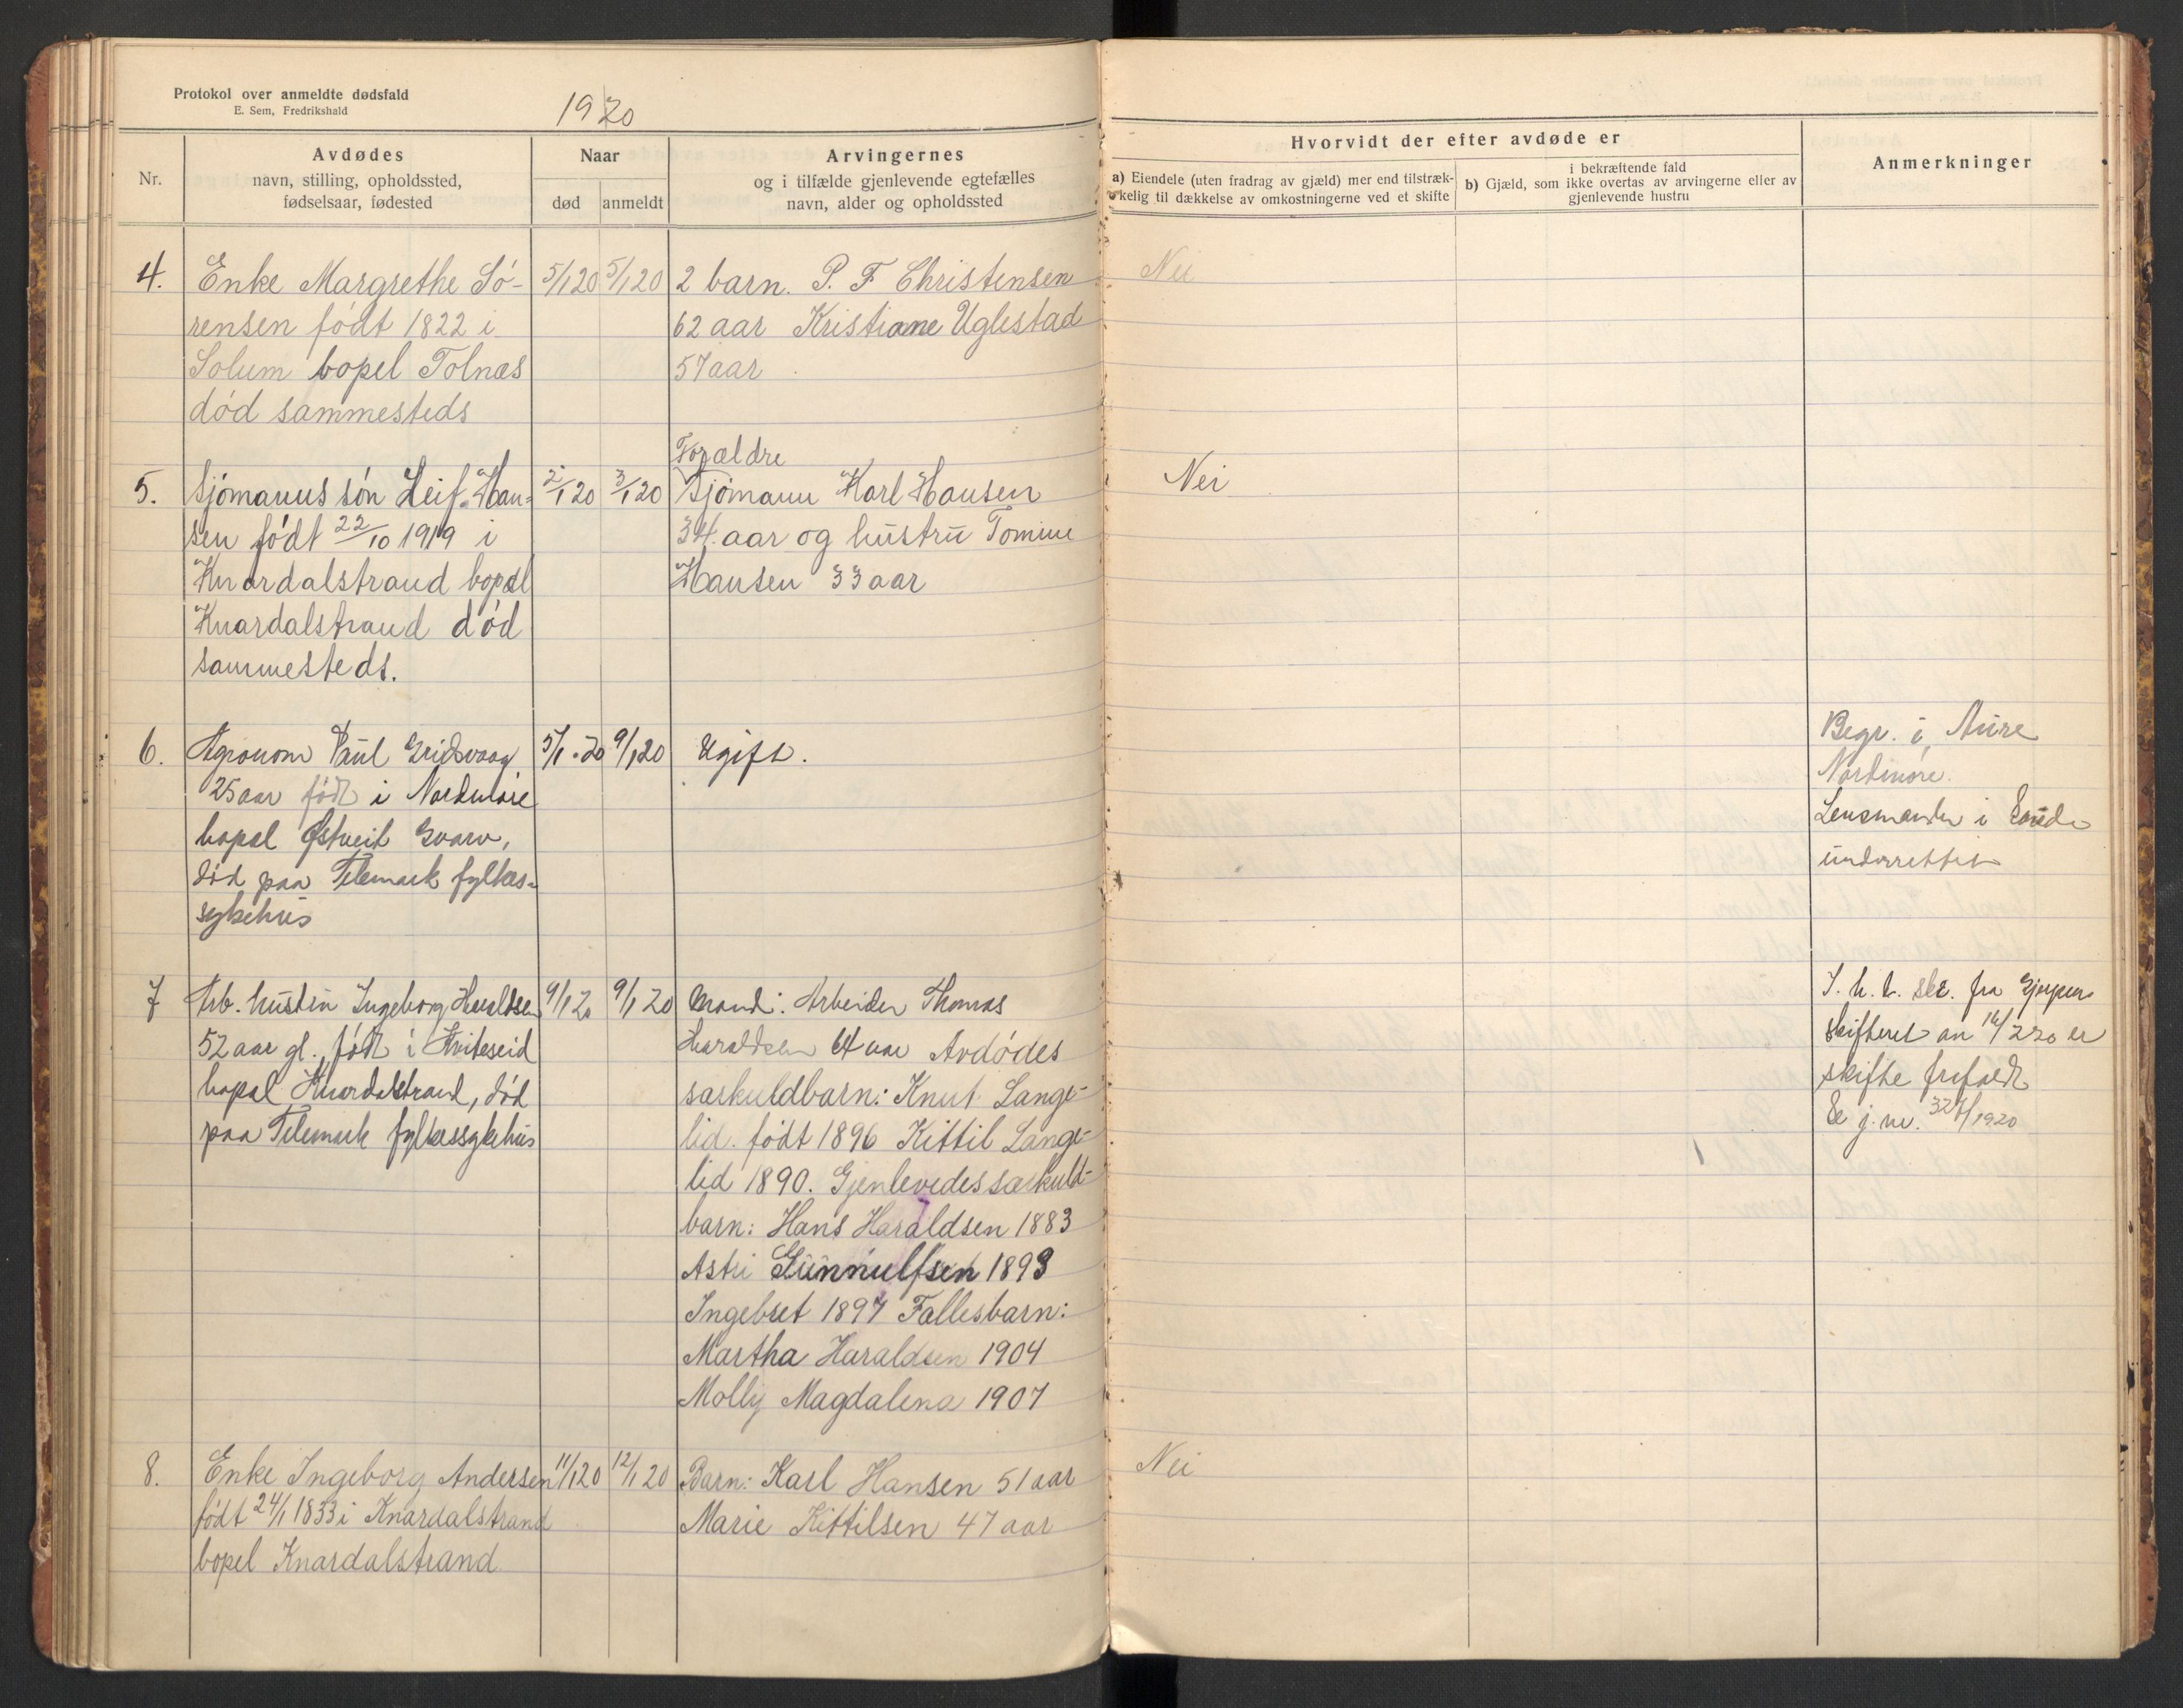 Protokol over anmeldte dødsfald
E. Sem, Fredrikshald
1920
Nr.
Avdødes
navn, stilling, opholdssted,
fødselsaar, fødested
Naar
død
anmeldt
Arvingernes
og i tilfælde gjenlevende egtefælles
navn, alder og opholdssted
Hvorvidt der efter avdøde er
a) Eiendele (uten fradrag av gjæld) mer end tilstræk-
kelig til dækkelse av omkostningerne ved et skifte
i bekræftende fald
b) Gjæld, som ikke overtas av arvingerne eller av
gjenlevende hustru
Anmerkninger
4.
Enke Margrethe Sö-
rensen födt 1822 i
Solum bopel Tolnæs
död sammesteds
5/1 20
5/1 20
2 barn. P. F Christensen
62 aar Kristiane Uglestad
57 aar
Nei
5.
Sjömanns sön Leif Han-
sen födt 22/10 1919 i
Knardalstrand bopæl
Knardalstrand död
sammesteds.
2/1 20
3/1 20
Forældre
Sjömann Karl Hansen
34 aar og hustru Tomine
Hansen 33 aar
Nei
6.
Agronom Paul
25 aar födt i Nordmöre
bopæl Østveit Gvarv,
död paa Telemark fylkes-
sykehus
5/1 - 20
9/1 20
Ugift.
Begr. i Aure
Nordmöre.
Lensmanden i
underrettet
7
Arb. hustru Ingeborg Haraldsen
52 aar gl., födt i Kviteseid
bopæl Knardalstrand, död
paa Telemark fylkessykehus
9/1 20
9/1 20
Mand: Arbeider Thomas
Haraldsen 64 aar Avdödes
særkuldbarn: Knut Lange-
lid. födt 1896 Kittil Lange-
lid 1890. Gjenlevedes særkuld-
barn: Hans Haraldsen 1883
Astri Gunnulfsen 1893
Ingebret 1897 Fællesbarn:
Martha Haraldsen 1904
Molly Magdalena 1907
I. h. t. skr. fra Gjerpen
skifteret an 16/2 20 er
skifte frafaldt
Se j. nr. 327/1920
8.
Enke Ingeborg Andersen
födt 24/1 1833 i Knardalstrand
bopel Knardalstrand
11/1 20
12/1 20
Barn: Karl Hansen 51 aar
Marie Kittilsen 47 aar
Nei